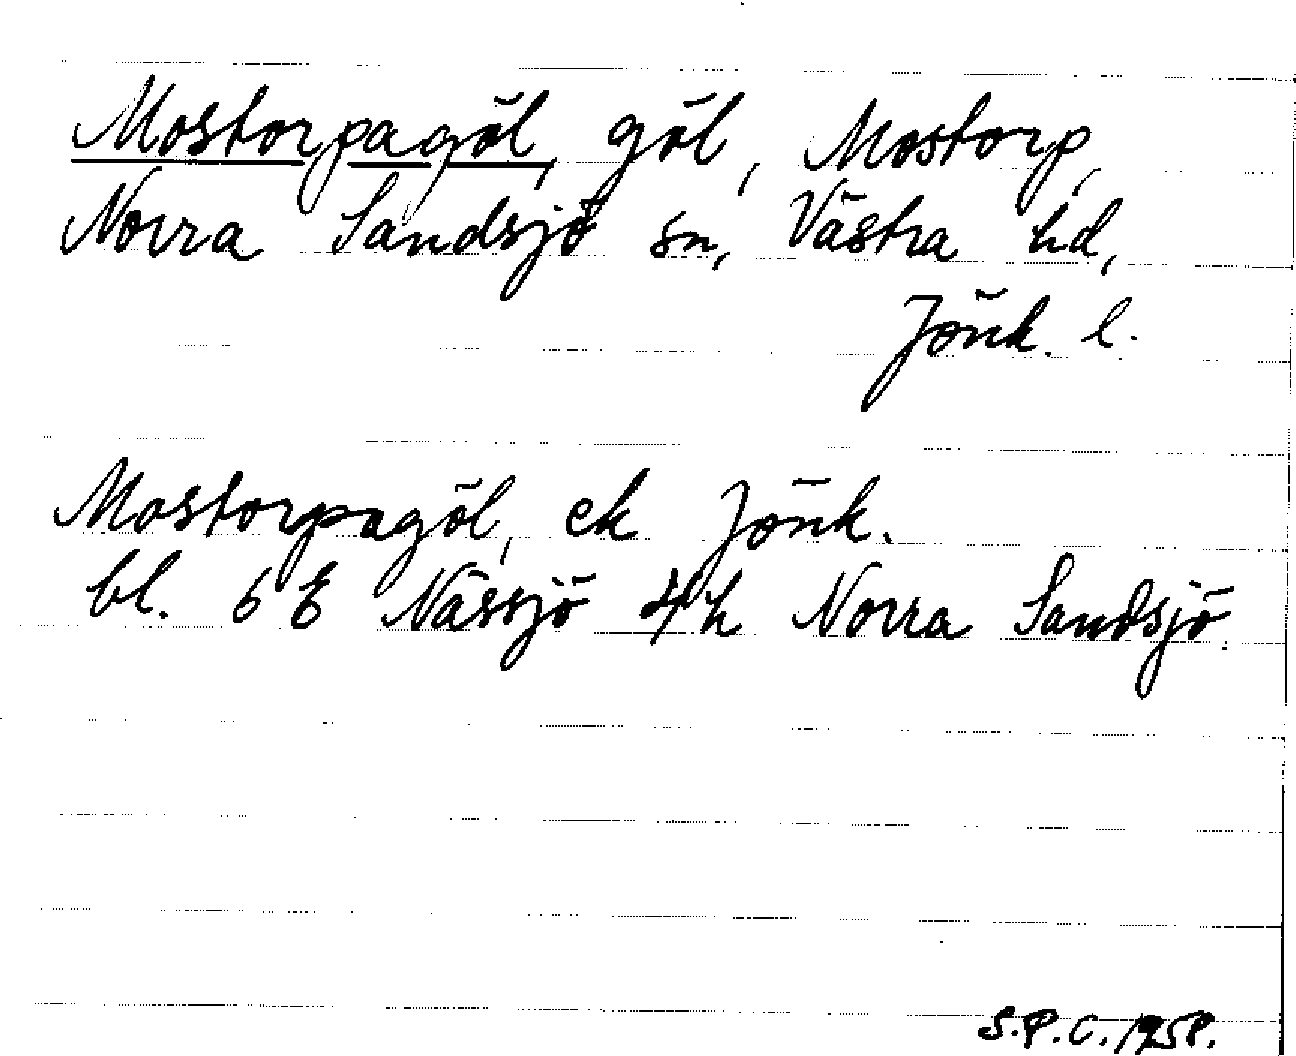 Mostorpagöl, göl, Mostorp,
Norra Sandsjö sn, Västra hd,
Jönk. l.
Mostorpagöl, ek Jönk.
bl. 6 E Nässjö 4h Norra Sandsjö.
S.P.C. 1958.